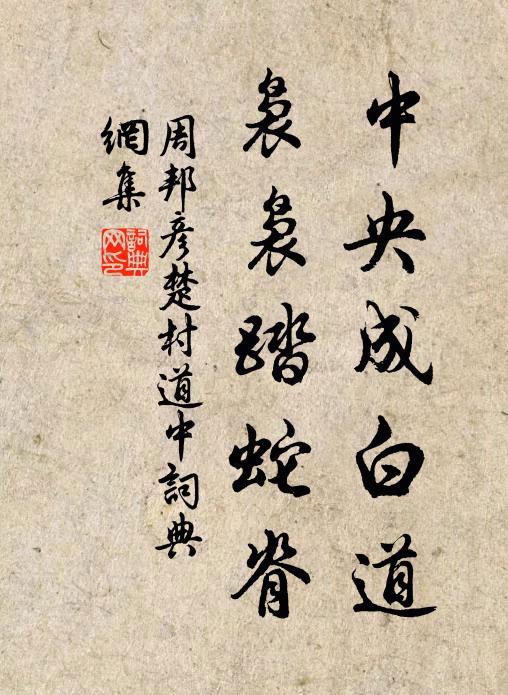 中央成白道
袅袅踏蛇脊
周邦彦楚村道中詞典
網集
詞典
网印